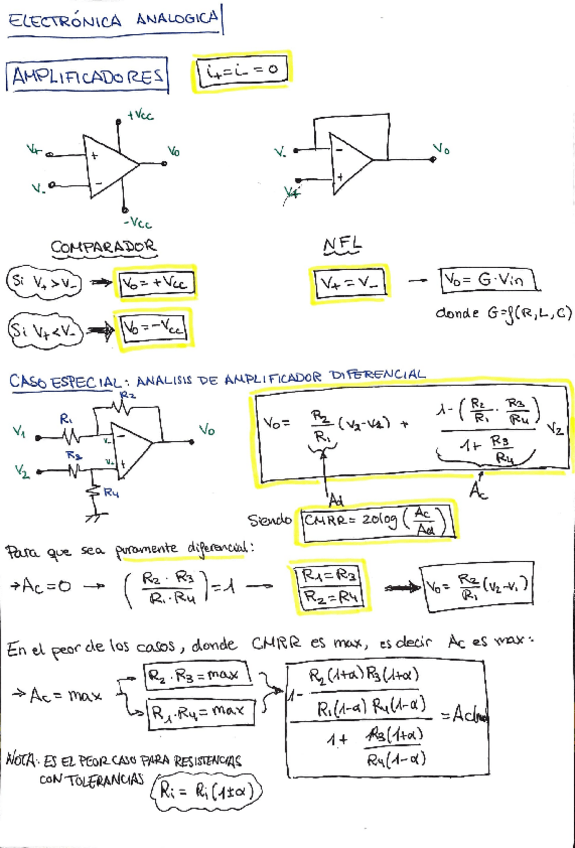 ELECTRÓNICA ANALOGICA
AMPLIFICADORES
i+ = i- = 0
+Vcc
V+
+
V-
-
Vo
-Vcc
V-
-
V+
+
Vo
COMPARADOR
NFL
Si V+ > V- → Vo = +Vcc
V+ = V- → Vo = G·Vin
donde G = f(R, L, C)
Si V+ < V- → Vo = -Vcc
CASO ESPECIAL: ANALISIS DE AMPLIFICADOR DIFERENCIAL
V1
R1
R2
V-
-
Vo
V2
R3
V+
+
R4
Vo = R2/R1 (V2-V1) + (1-(R2/R1 · R3/R4))/(1+R3/R4) V2
Ad
Ac
Siendo CMRR = 20log (Ac/Ad)
Para que sea puramente diferencial:
→ Ac = 0 → (R2·R3/R1·R4) = 1 → R1 = R3
R2 = R4
→ Vo = R2/R1 (V2-V1)
En el peor de los casos, donde CMRR es max, es decir Ac es max:
→ Ac = max → R2·R3 = max
R1·R4 = max
(1 - R2(1+α)R3(1+α)/R1(1-α)R4(1-α))/(1 + R3(1+α)/R4(1-α)) = Ac|max
NOTA: ES EL PEOR CASO PARA RESISTENCIAS
CON TOLERANCIAS
Ri = Ri(1±α)